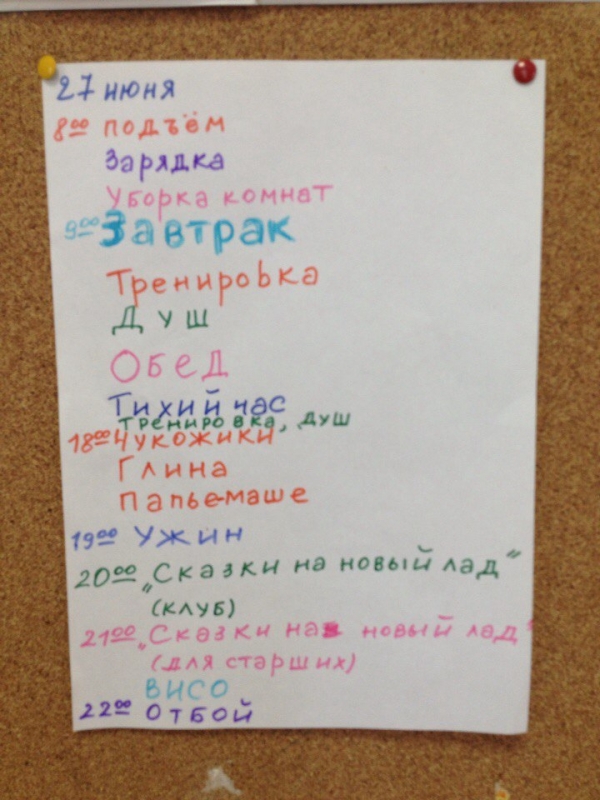 27 июня
8⁰⁰ подъём
Зарядка
Уборка комнат
9⁰⁰ Завтрак
Тренировка
Душ
Обед
Тихий час
тренировка, душ
18⁰⁰ Чукожики
Глина
Папье-маше
19⁰⁰ Ужин
20⁰⁰ „Сказки на новый лад"
(клуб)
21⁰⁰ „Сказки на новый лад"
(для старших)
ВИСО
22⁰⁰ Отбой